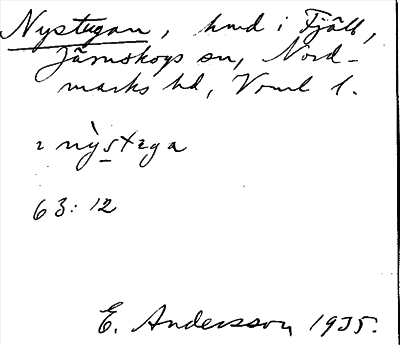 Nystugan, hmd i Fjäll,
Järnskogs sn, Nord-
marks hd, Vrml l.
nỳstɛga
63: 12
E. Andersson 1935.